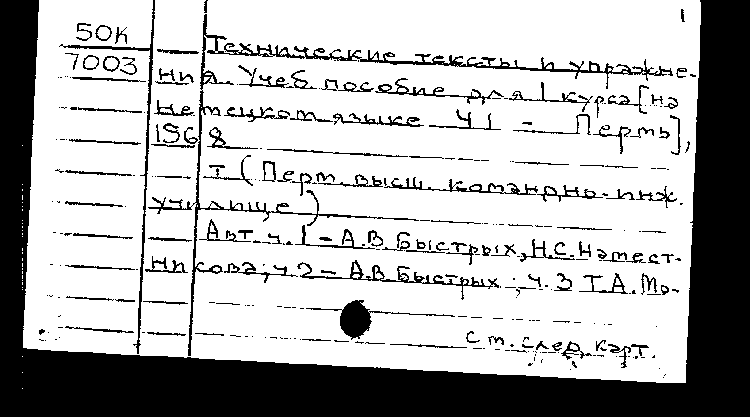 1
50К
7003
Технические тексты и упражне-
ния. Учеб пособие для 1 курса [на
немецком языке Ч 1 – Пермь],
1968
т (Перм. высш. командно-инж.
училище)
Авт. ч. 1 – А.В. Быстрых, Н.С. Намест-
никова; ч. 2 – А.В. Быстрых; ч. 3 Т.А. Мо-
См. след. карт.